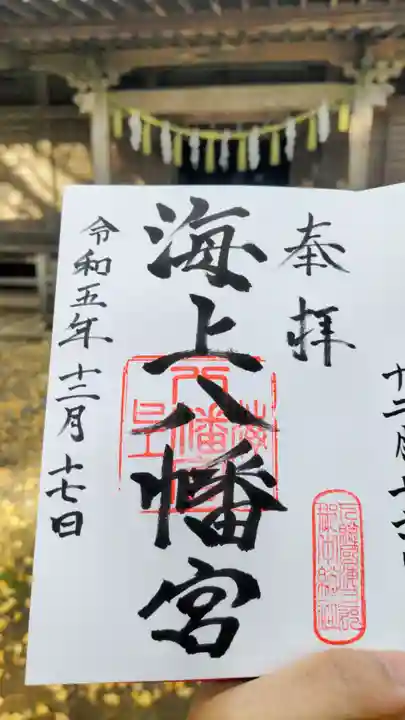 奉拝
海上八幡宮
令和五年十二月十七日
十二月十六日